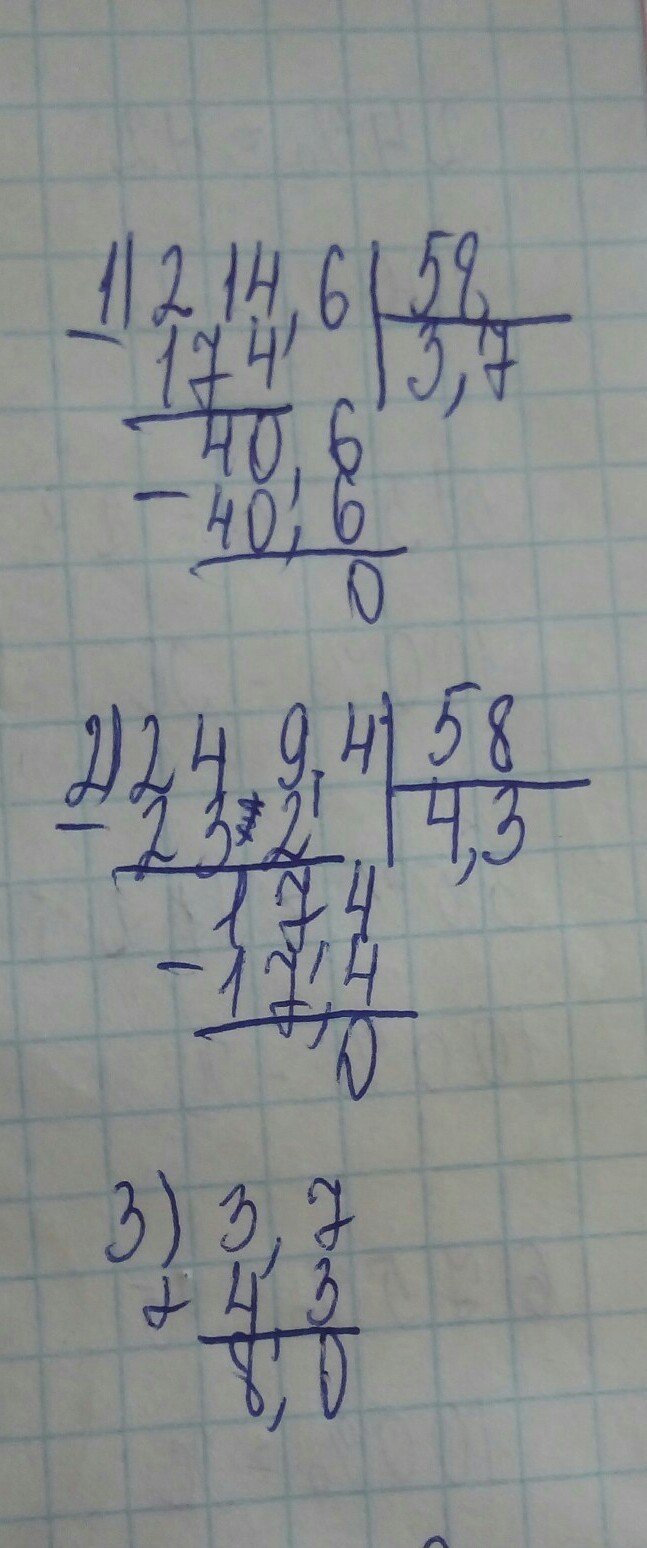 1) 214,6 | 58
- 174 | 3,7
40,6
- 40,6
0
2) 249,4 | 58
- 232 | 4,3
17,4
- 17,4
0
3) 3,7
+ 4,3
8,0